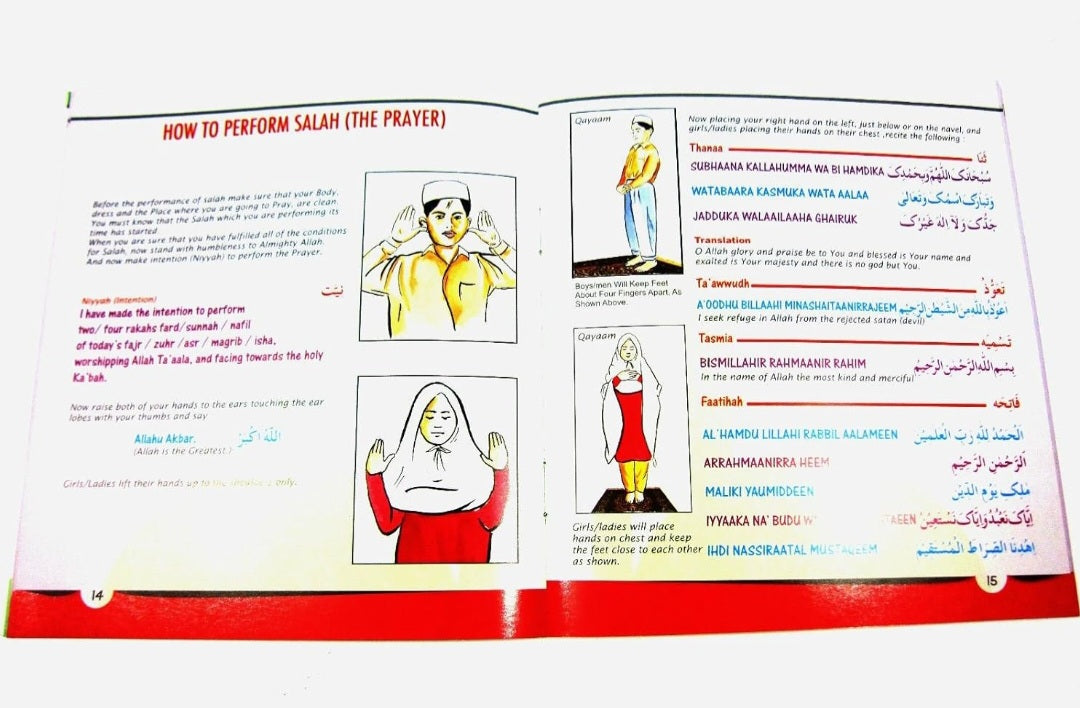 HOW TO PERFORM SALAH (THE PRAYER)
Before the performance of salah make sure that your Body,
dress and the Place where you are going to Pray, are clean.
You must know that the Salah which you are performing its
time has started.
When you are sure that you have fulfilled all of the conditions
for Salah, now stand with humbleness to Almighty Allah.
And now make intention (Niyyah) to perform the Prayer.
Niyyah (Intention) نیّت
I have made the intention to perform
two/ four rakahs fard/sunnah / nafil
of today's fajr / zuhr /asr / magrib / isha,
worshipping Allah Ta'aala, and facing towards the holy
Ka'bah.
Now raise both of your hands to the ears touching the ear
lobes with your thumbs and say
Allahu Akbar. اَللّٰهُ اَكْبَرُ
(Allah is the Greatest.)
Girls/Ladies lift their hands up to the shoulders only.
14
Qayaam
Boys/men Will Keep Feet
About Four Fingers Apart, As
Shown Above.
Qayaam
Girls/ladies will place
hands on chest and keep
the feet close to each other
as shown.
Now placing your right hand on the left, just below or on the navel, and
girls/ladies placing their hands on their chest ,recite the following :
Thanaa ثَنَا
SUBHAANA KALLAHUMMA WA BI HAMDIKA سُبْحَانَكَ اللّٰهُمَّ وَبِحَمْدِكَ
WATABAARA KASMUKA WATA AALAA وَتَبَارَكَ اسْمُكَ وَتَعَالٰی
JADDUKA WALAAILAAHA GHAIRUK جَدُّكَ وَلَآ اِلٰهَ غَيْرُكَ
Translation
O Allah glory and praise be to You and blessed is Your name and
exalted is Your majesty and there is no god but You.
Ta'awwudh تَعَوُّذْ
A'OODHU BILLAAHI MINASHAITAANIRRAJEEM اَعُوْذُ بِاللّٰهِ مِنَ الشَّيْطٰنِ الرَّجِيْمِ
I seek refuge in Allah from the rejected satan (devil)
Tasmia تَسْمِيَه
BISMILLAHIR RAHMAANIR RAHIM بِسْمِ اللّٰهِ الرَّحْمٰنِ الرَّحِيْمِ
In the name of Allah the most kind and merciful
Faatihah فَاتِحَه
AL'HAMDU LILLAHI RABBIL AALAMEEN اَلْحَمْدُ لِلّٰهِ رَبِّ الْعٰلَمِيْنَ
ARRAHMAANIRRA HEEM اَلرَّحْمٰنِ الرَّحِيْمِ
MALIKI YAUMIDDEEN مٰلِكِ يَوْمِ الدِّيْنِ
IYYAAKA NA' BUDU اِيَّاكَ نَعْبُدُ وَاِيَّاكَ نَسْتَعِيْنُ
IHDI NASSIRAATAL MUSTAQEEM اِهْدِنَا الصِّرَاطَ الْمُسْتَقِيْمَ
15